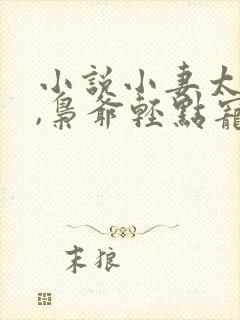 小說小妻太
,梟爺輕點寵
末狼